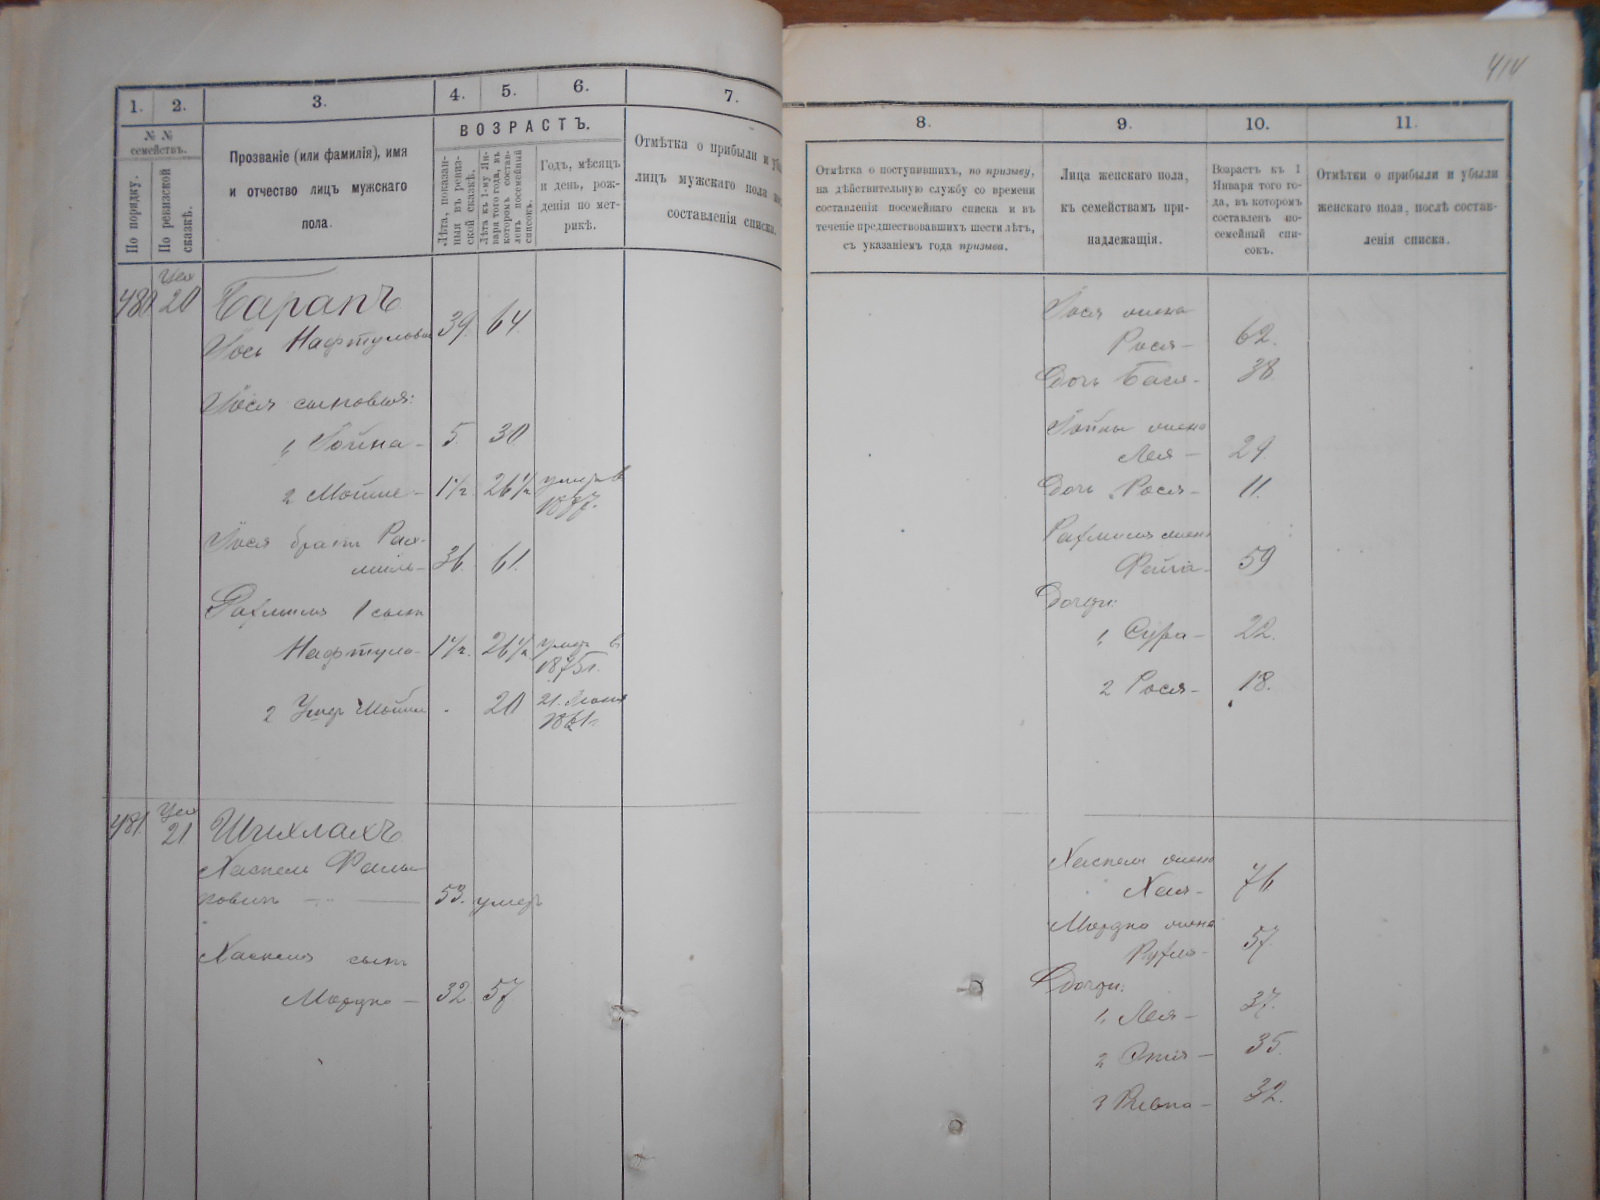 414
1.
2.
3.
4.
5.
6.
7.
№ №
семействъ.
По порядку.
По ревизской
сказкѣ.
Прозваніе (или фамилія), имя
и отчество лицъ мужскаго
пола.
ВОЗРАСТЪ.
Лѣта, показан-
ныя въ ревиз-
ской сказкѣ.
Лѣта къ 1-му Ян-
варя того года, въ
которомъ состав-
ленъ посемейный
списокъ.
Годъ, мѣсяцъ
и день, рож-
денія по мет-
рикѣ.
Отмѣтка о прибыли и
лицъ мужскаго пола
составленія списка.
480
Цех
20
Баранъ
Іось Нафтулов
39.
64
Іося сыновья:
1, Іойна -
5.
30
2 Мойше -
1½.
26½
умеръ в
1877.
Іося братъ Рах-
миль -
36.
61.
Рахмиля 1 сынъ
Нафтула -
1½.
26½
умеръ в
1875 г.
2 Мойше
-
20
21.
1861 г.
481.
Цех
21
Хаскель
53.
умеръ
Хаскеля сынъ
Мордко -
32
57
8.
9.
10.
11.
Отмѣтка о поступившихъ, по призыву,
на дѣйствительную службу со времени
составленія посемейнаго списка и въ
теченіе предшествовавшихъ шести лѣтъ,
съ указаніемъ года призыва.
Лица женскаго пола,
къ семействамъ при-
надлежащія.
Возрастъ къ 1
Января того го-
да, въ которомъ
составленъ по-
семейный спи-
сокъ.
Отмѣтки о прибыли и убыли
женскаго пола, послѣ состав-
ленія списка.
Іося жена
Рося -
62.
Дочь Бася -
38
Іойны жена
Лея -
29.
Дочь Рося -
11.
Рахмиля жена
Фейга -
59
Дочери:
1, Сура -
22.
2 Рося -
18.
Хаскеля жена
Хая -
76
Мордко жена
Рухля -
57.
Дочери:
1, Лея -
37.
2
35.
3 Ривка -
32.